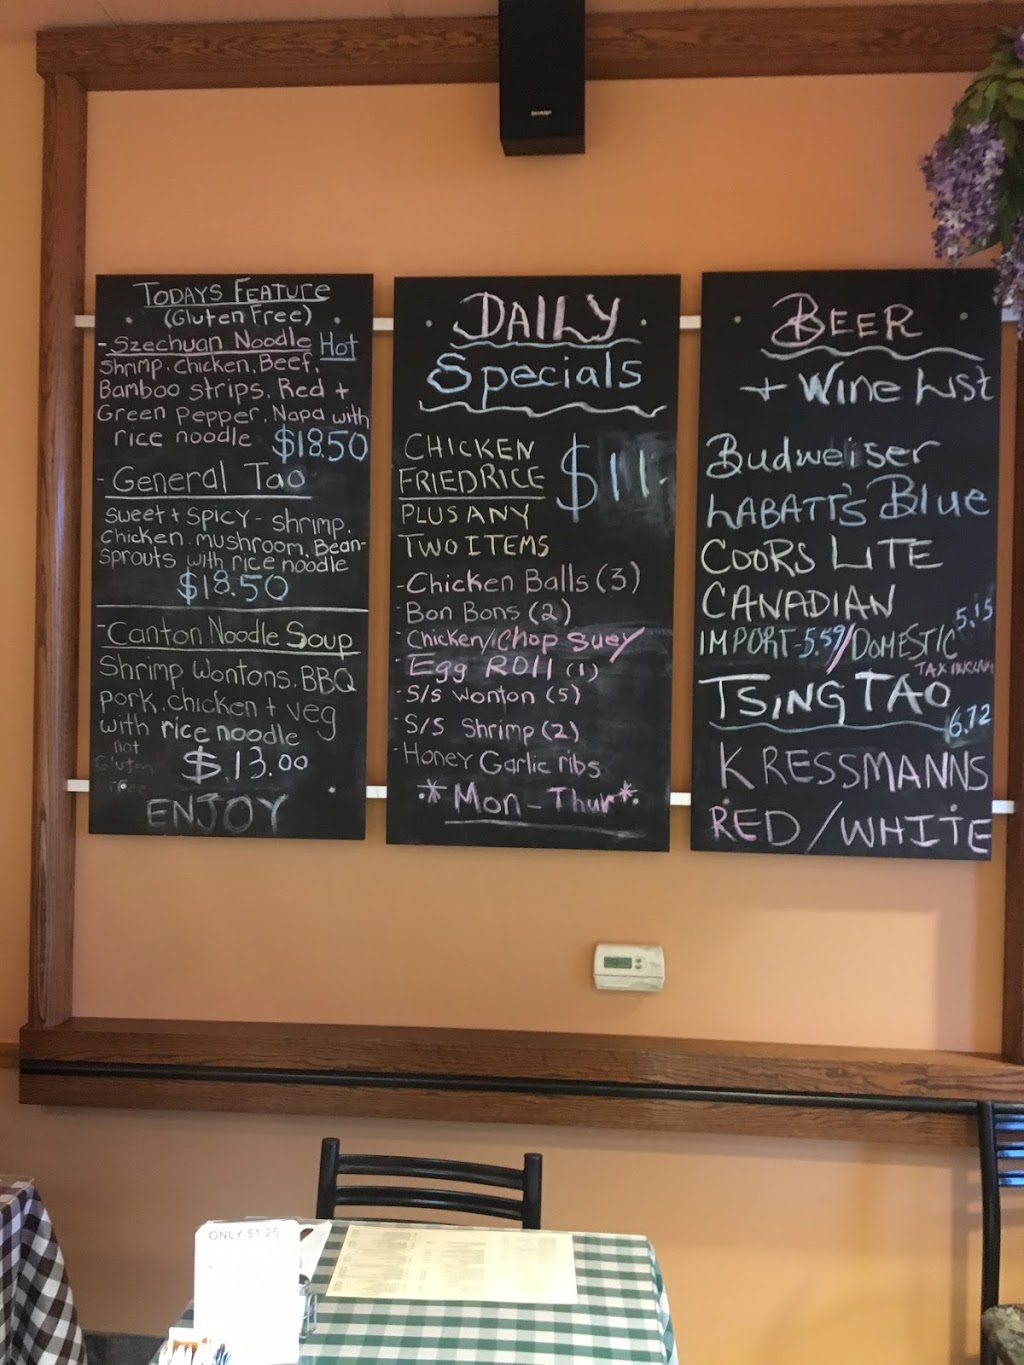 SHARP
TODAYS FEATURE
(Gluten Free)
- Szechuan Noodle Hot
Shrimp. chicken, Beef,
Bamboo strips, Red +
Green Pepper, Napa with
rice noodle $18.50
- General Tao
sweet + spicy - shrimp,
chicken mushroom, Bean-
sprouts with rice noodle
$18.50
- Canton Noodle Soup
Shrimp Wontons, BBQ
pork, chicken + veg
with rice noodle
not
Gluten
Free
$13.00
ENJOY
DAILY
Specials
CHICKEN
FRIED RICE
$11-
PLUS ANY
TWO ITEMS
- Chicken Balls (3)
- Bon Bons (2)
- Chicken/Chop Suey
- Egg Roll (1)
- S/S wonton (5)
- S/S Shrimp (2)
- Honey Garlic ribs
*Mon-Thur*
BEER
+ Wine List
Budweiser
LABATT'S Blue
COORS LITE
CANADIAN
IMPORT-5.59/DOMESTIC 5.15
TSING TAO
6.72
KRESSMANNS
RED/WHITE
ONLY $1.25